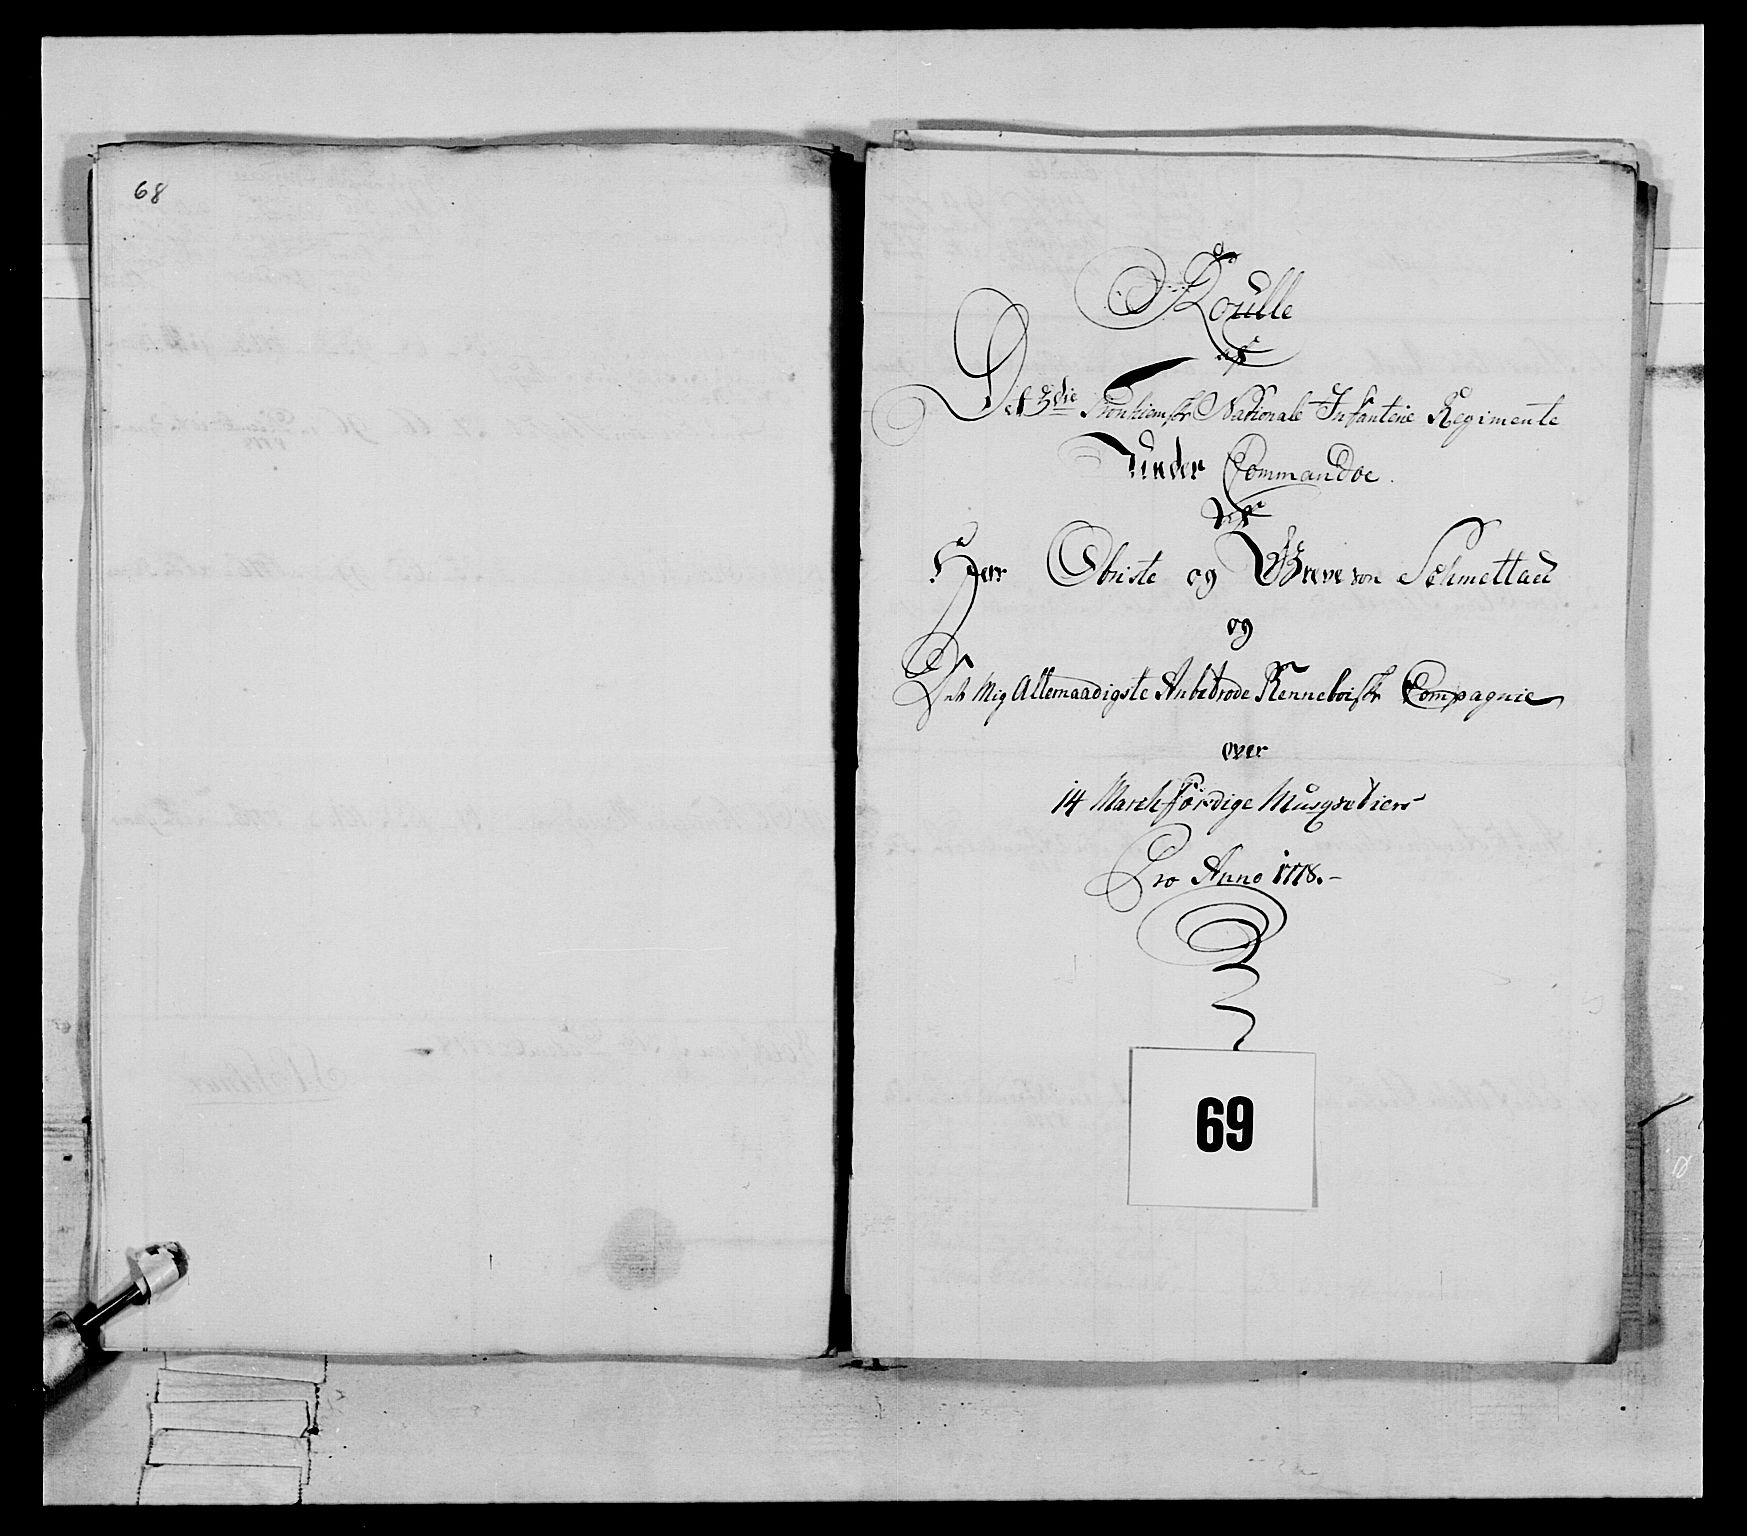 68
Roulle
af
Det 3die Tronhiemske Nationale Infanterie Regimente
Under Commandoe.
Af
Herr Obriste og Greve von Schmettau
og
Det Mig Allernaadigste Anbetrode Kenneboiske Compagnie
over
14 Marchfördige Musqvetiers
Pro Anno 1778.-
69